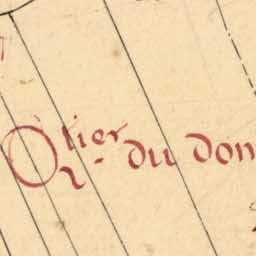 Qtier du don
2.